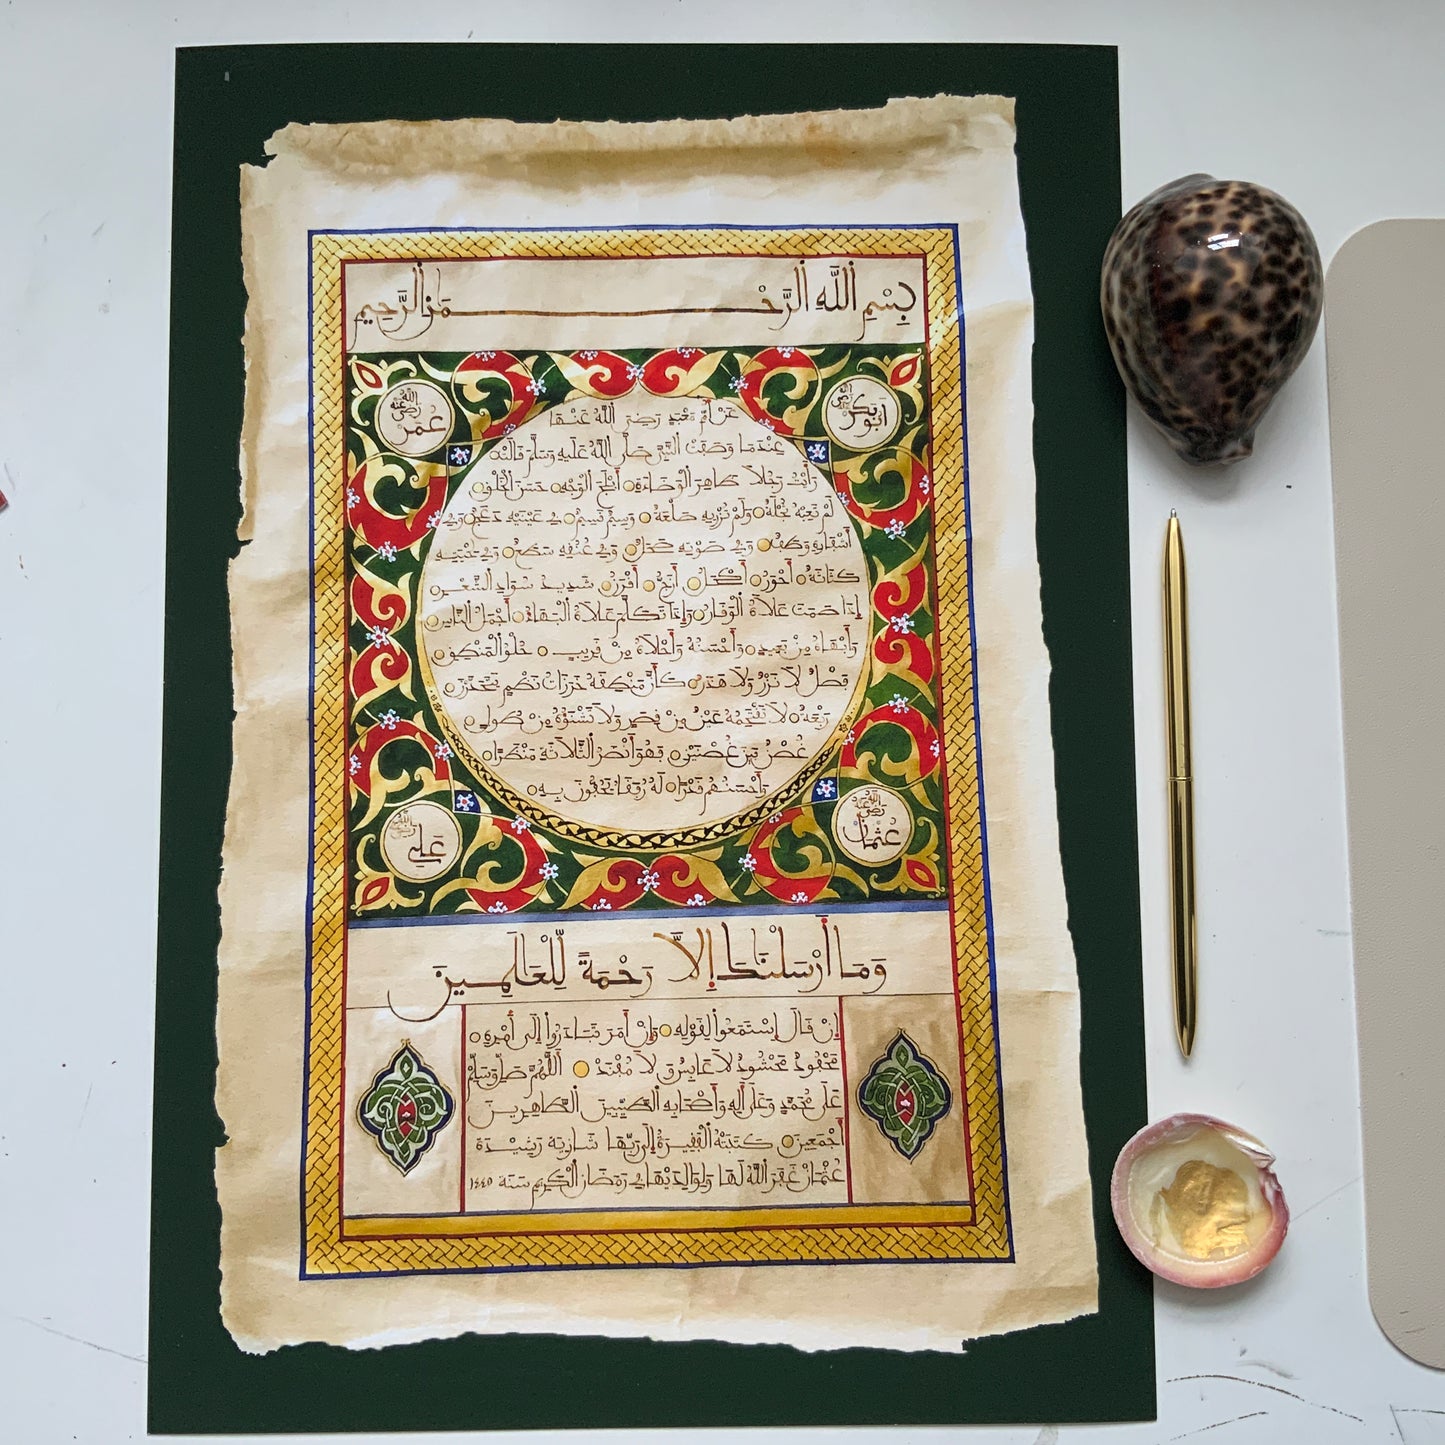 بِسْمِ اللَّهِ الرَّحْمَٰنِ الرَّحِيمِ
أبو بكر رضي الله عنه
عُمَر رضي الله عنه
عَنْ أُمِّ مَعْبَدٍ رَضِيَ اللَّهُ عَنْهَا
عِنْدَمَا وَصَفَتِ النَّبِيَّ صَلَّى اللَّهُ عَلَيْهِ وَسَلَّمَ قَالَتْ
رَأَيْتُ رَجُلاً ظَاهِرَ الْوَضَاءَةِ أَبْلَجَ الْوَجْهِ حَسَنَ الْخَلْقِ
لَمْ تَعِبْهُ ثُجْلَةٌ وَلَمْ تُزْرِيهِ صَعْلَةٌ وَسِيمٌ قَسِيمٌ فِي عَيْنَيْهِ دَعَجٌ وَفِي
أَشْفَارِهِ وَطَفٌ وَفِي صَوْتِهِ صَحَلٌ وَفِي عُنُقِهِ سَطَعٌ وَفِي لِحْيَتِهِ
كَثَاثَةٌ أَحْوَرُ أَكْحَلُ أَزَجُّ أَقْرَنُ شَدِيدُ سَوَادِ الشَّعْرِ
إِذَا صَمَتَ عَلَاهُ الْوَقَارُ وَإِذَا تَكَلَّمَ عَلَاهُ الْبَهَاءُ أَجْمَلُ النَّاسِ
وَأَبْهَاهُ مِنْ بَعِيدٍ وَأَحْسَنُهُ وَأَحْلَاهُ مِنْ قَرِيبٍ حُلْوُ الْمَنْطِقِ
فَصْلٌ لَا نَزْرٌ وَلَا هَذَرٌ كَأَنَّ مَنْطِقَهُ خَرَزَاتُ نَظْمٍ يَتَحَدَّرْنَ
رَبْعَةٌ لَا تَقْتَحِمُهُ عَيْنٌ مِنْ قِصَرٍ وَلَا تَشْنَؤُهُ مِنْ طُولٍ
غُصْنٌ بَيْنَ غُصْنَيْنِ فَهُوَ أَنْضَرُ الثَّلَاثَةِ مَنْظَرًا
وَأَحْسَنُهُمْ قَدْرًا لَهُ رُفَقَاءُ يَحُفُّونَ بِهِ
عُثْمَانُ رضي الله عنه
عَلِي رضي الله عنه
وَمَا أَرْسَلْنَاكَ إِلَّا رَحْمَةً لِّلْعَالَمِينَ
إِنْ قَالَ اسْتَمَعُوا لِقَوْلِهِ وَإِنْ أَمَرَ تَبَادَرُوا إِلَى أَمْرِهِ
مَحْفُودٌ مَحْشُودٌ لَا عَابِسٌ وَلَا مُفْنِدٌ اللَّهُمَّ صَلِّ وَسَلِّمْ
عَلَى مُحَمَّدٍ وَعَلَى آلِهِ وَأَصْحَابِهِ الطَّيِّبِينَ الطَّاهِرِينَ
أَجْمَعِينَ كَتَبَتْهُ الْفَقِيرَةُ إِلَى رَبِّهَا شَازِيَة رَشِيدَة
عُثْمَان غَفَرَ اللَّهُ لَهَا وَلِوَالِدَيْهَا فِي رَمَضَانَ الْكَرِيمِ سَنَة ١٤٤٥